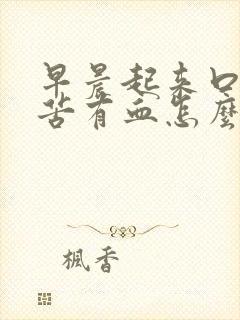 早晨起来口
苦有血怎麼
楓香